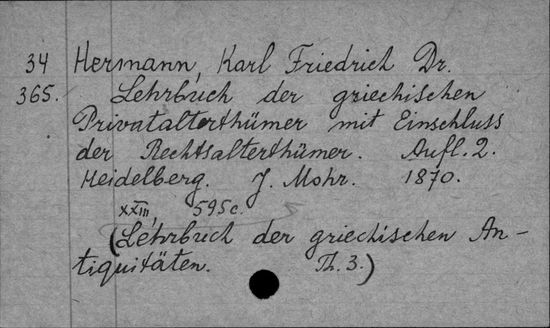 34 Hermann, Karl Friedrich Dr.
365. Lehrbuch der griechischen
Privatalterthümer mit Einschluss
der Rechtsalterthümer. Aufl. 2.
Heidelberg. J. Mohr. 1870.
XXIII, 595 c.
(Lehrbuch der griechischen An-
tiquitäten. Th. 3.)